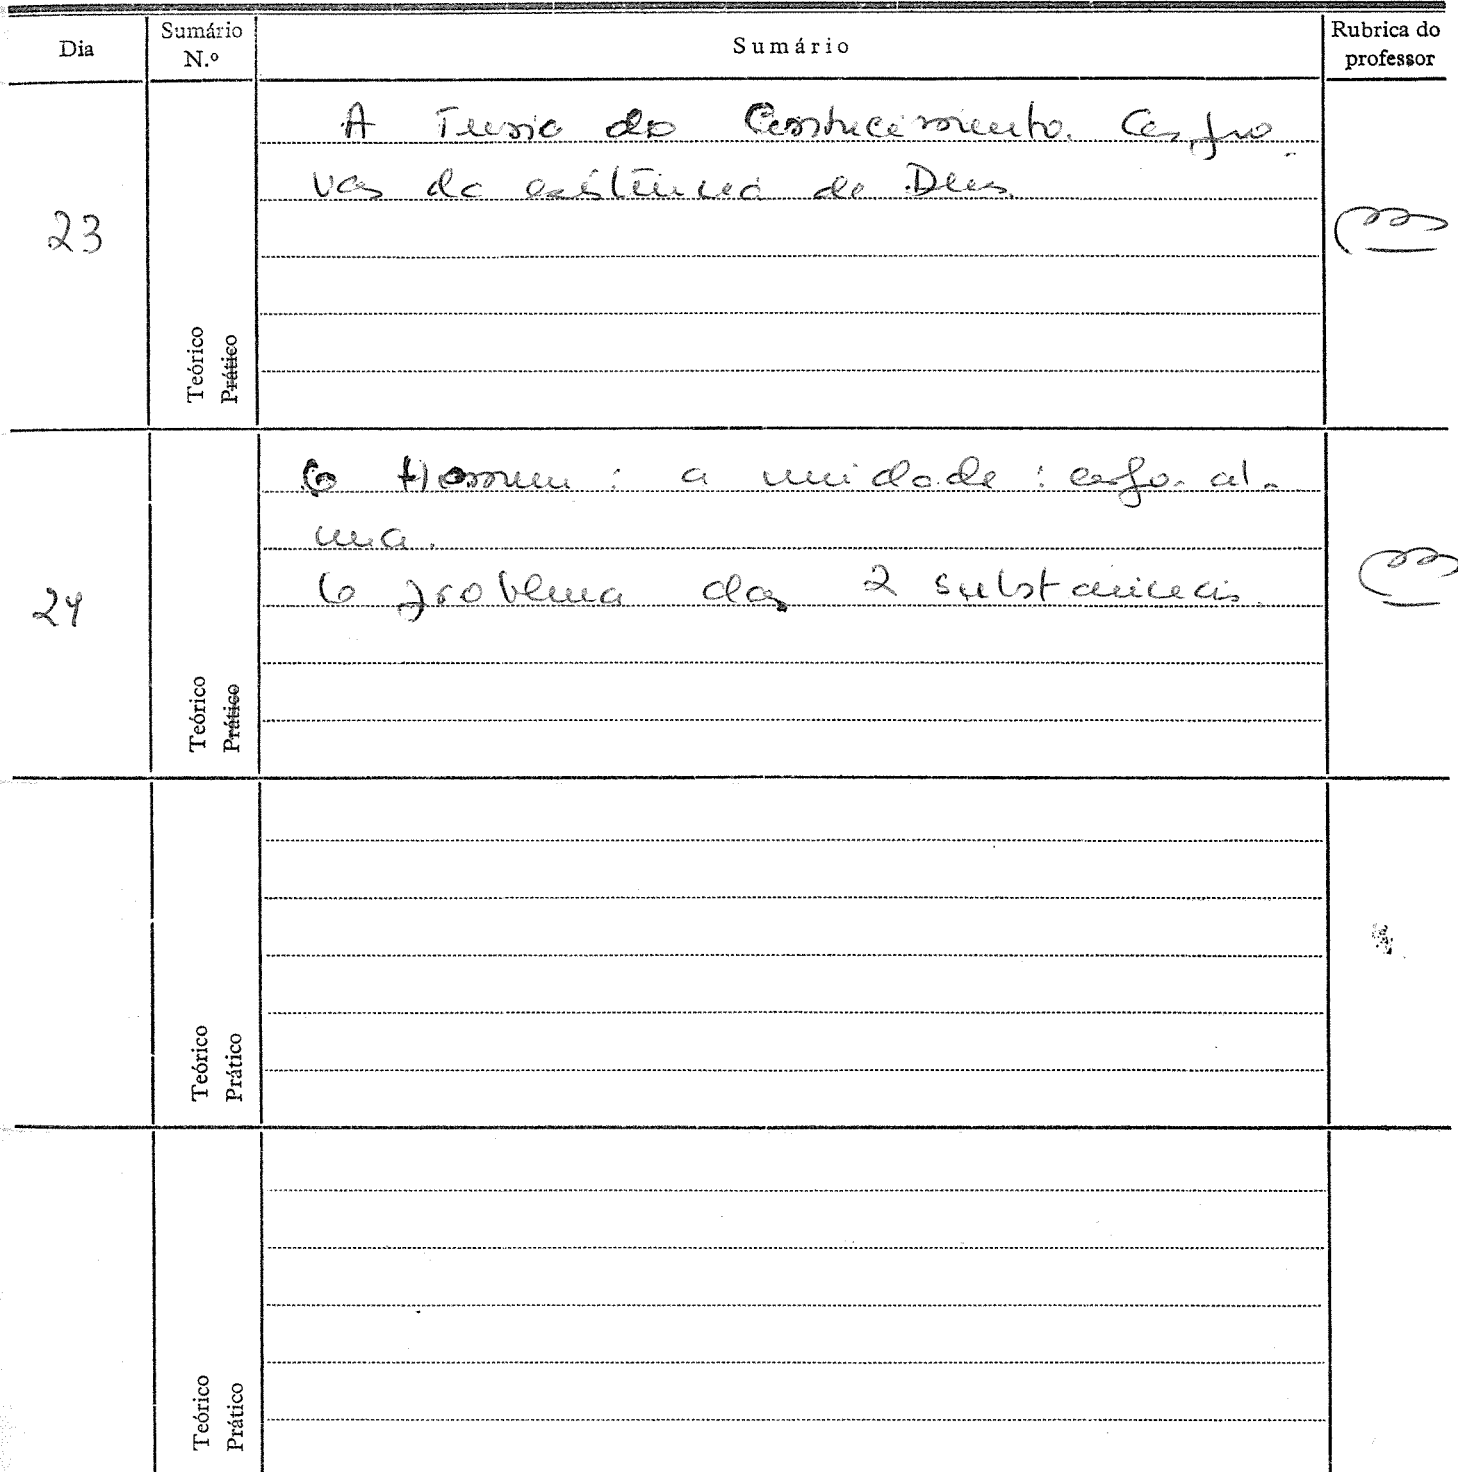 Dia
Sumário
N.º
Sumário
Rubrica do
professor
23
Teórico
Prático
A Teoria do Conhecimento. As pro-
vas da existência de Deus.
24
Teórico
Prático
O Homem: a unidade: corpo-al-
ma.
O problema das 2 substâncias.
Teórico
Prático
Teórico
Prático